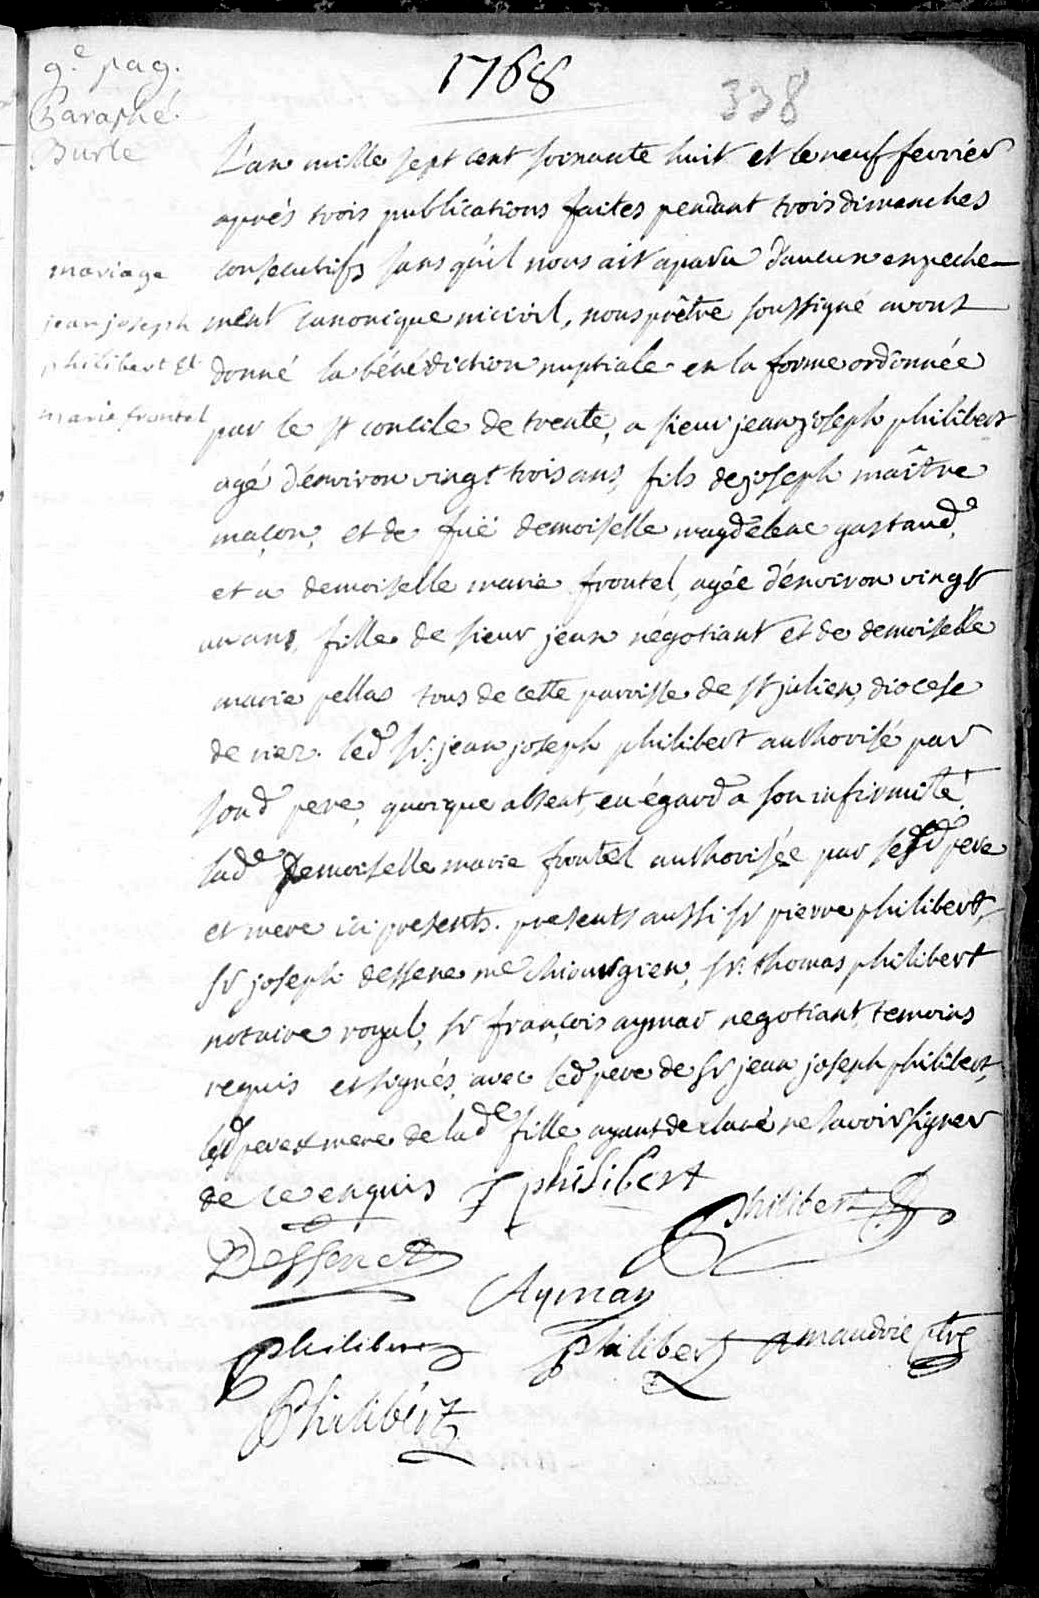 9.e pag.
Paraphé.
Burle
1768
338
L'an mille sept cent soixante huit et le neuf fevrier
aprés trois publications faites pendant trois dimanches
consecutifs sans qu'il nous ait aparu d'aucun empeche-
ment canonique ni civil, nous prêtre soussigné avons
donné la bénédiction nuptiale en la forme ordonnée
par le st concile de trente, a sieur jean joseph philibert
agé d'environ vingt trois ans, fils de joseph maître
maçon, et de füe demoiselle magdelene gastaud,
et a demoiselle marie froutel, agée d'environ vingt
un ans, fille de sieur jean négotiant et de demoiselle
marie pellas tous de cette paroisse de st julien, diocese
de riez. led sr. jean joseph philibert authorisé par
sond pere, quoique absent, eu égard a son infirmité.
lade demoiselle marie froutel authorisée par sesd pere
et mere ici presents. presents aussi sr pierre philibert,
sr joseph dessene me chirurgien, sr. thomas philibert
notaire royal, sr françois aymar negotiant, temoins
requis et signés, avec led pere de sr jean joseph philibert,
lesd pere et mere de lade fille ayant declaré ne savoir signer
de ce enquis
mariage
jean joseph
philibert et
marie froutel
J philibert
Philibert
Dessene
Aymar
Philibert
Philibert
maudric ptre
Philibert